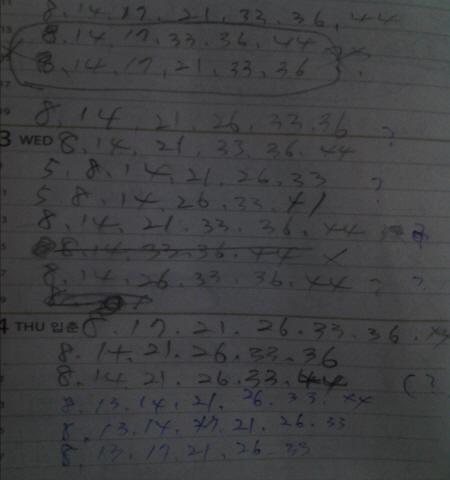 8. 14. 17. 21. 33. 36. 44
8. 14. 17. 33. 36. 44
8. 14. 17. 21. 33. 36 ?
8. 14. 21. 26. 33. 36 ?
3 WED 8. 14. 21. 33. 36. 44
5. 8. 14. 21. 26. 33 ?
5 8. 14. 26. 33. 41
8. 14. 21. 33. 36. 44
8. 14. 33. 36. 44 X
8. 14. 26. 33. 36. 44 ? ?
4 THU 입춘 8. 17. 21. 26. 33. 36. 44
8. 14. 21. 26. 33. 36
8. 14. 21. 26. 33. 44 ( ?
8. 13. 14. 21. 26. 33. 44
8. 13. 14. 21. 26. 33
8. 13. 17. 21. 26. 33